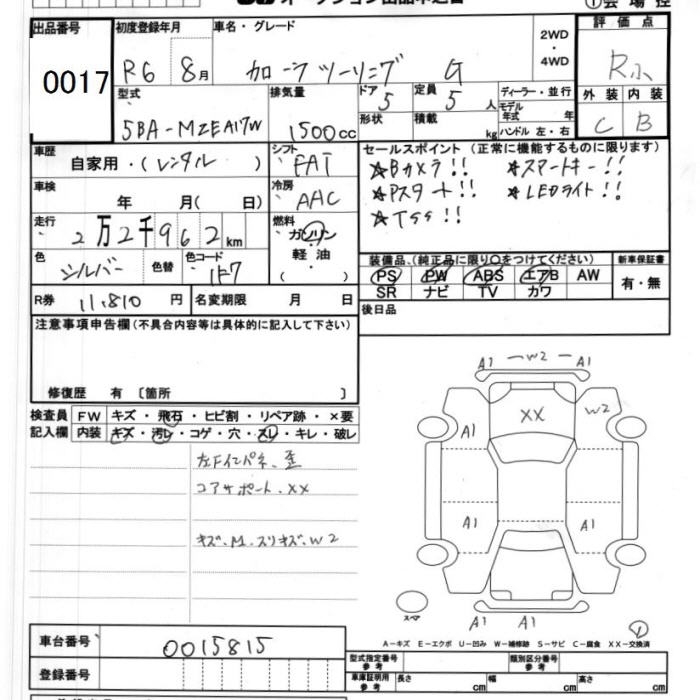 オークション出品申込書
①会場控
出品番号 初度登録年月 車名・グレード 2WD・4WD 評価点
0017 R6 8月 カローラツーリング G R小
型式 排気量 ドア 5 定員 5人 ディーラー・並行 外装 内装
5BA-MZEA17W 1500cc 形状 積載 kg モデル年式 年 ハンドル 左・右 C B
車歴 自家用・(レンタル) シフト FAT セールスポイント (正常に機能するものに限ります)
☆Bカメラ!! ☆スマートキー!!
車検 年 月( 日) 冷房 AAC ☆Pスタート!! ☆LEDライト!!
☆TSS!!
走行 2万2千962km 燃料 ガソリン・軽油・( )
色 シルバー 色替 色コード 1F7
装備品、(純正品に限り○をつけてください) 新車保証書
PS PW ABS エアB AW 有・無
SR ナビ TV カワ
R券 11,810円 名変期限 月 日
後日品
注意事項申告欄(不具合内容等は具体的に記入して下さい)
修復歴 有 〔箇所 〕
検査員 FW キズ・飛石・ヒビ割・リペア跡・×要
記入欄 内装 キズ・汚レ・コゲ・穴・スレ・キレ・破レ
左Fインパネ、歪
コアサポート、XX
キズ、M、スリキズ、W2
A1 W2 A1
XX W2
A1
A1 A1
A1 A1
スペア
①
A-キズ E-エクボ U-凹み W-補修跡 S-サビ C-腐食 XX-交換済
車台番号 0015815
登録番号
型式指定番号 参考 類別区分番号 参考
車庫証明用 参考 長さ cm 幅 cm 高さ cm